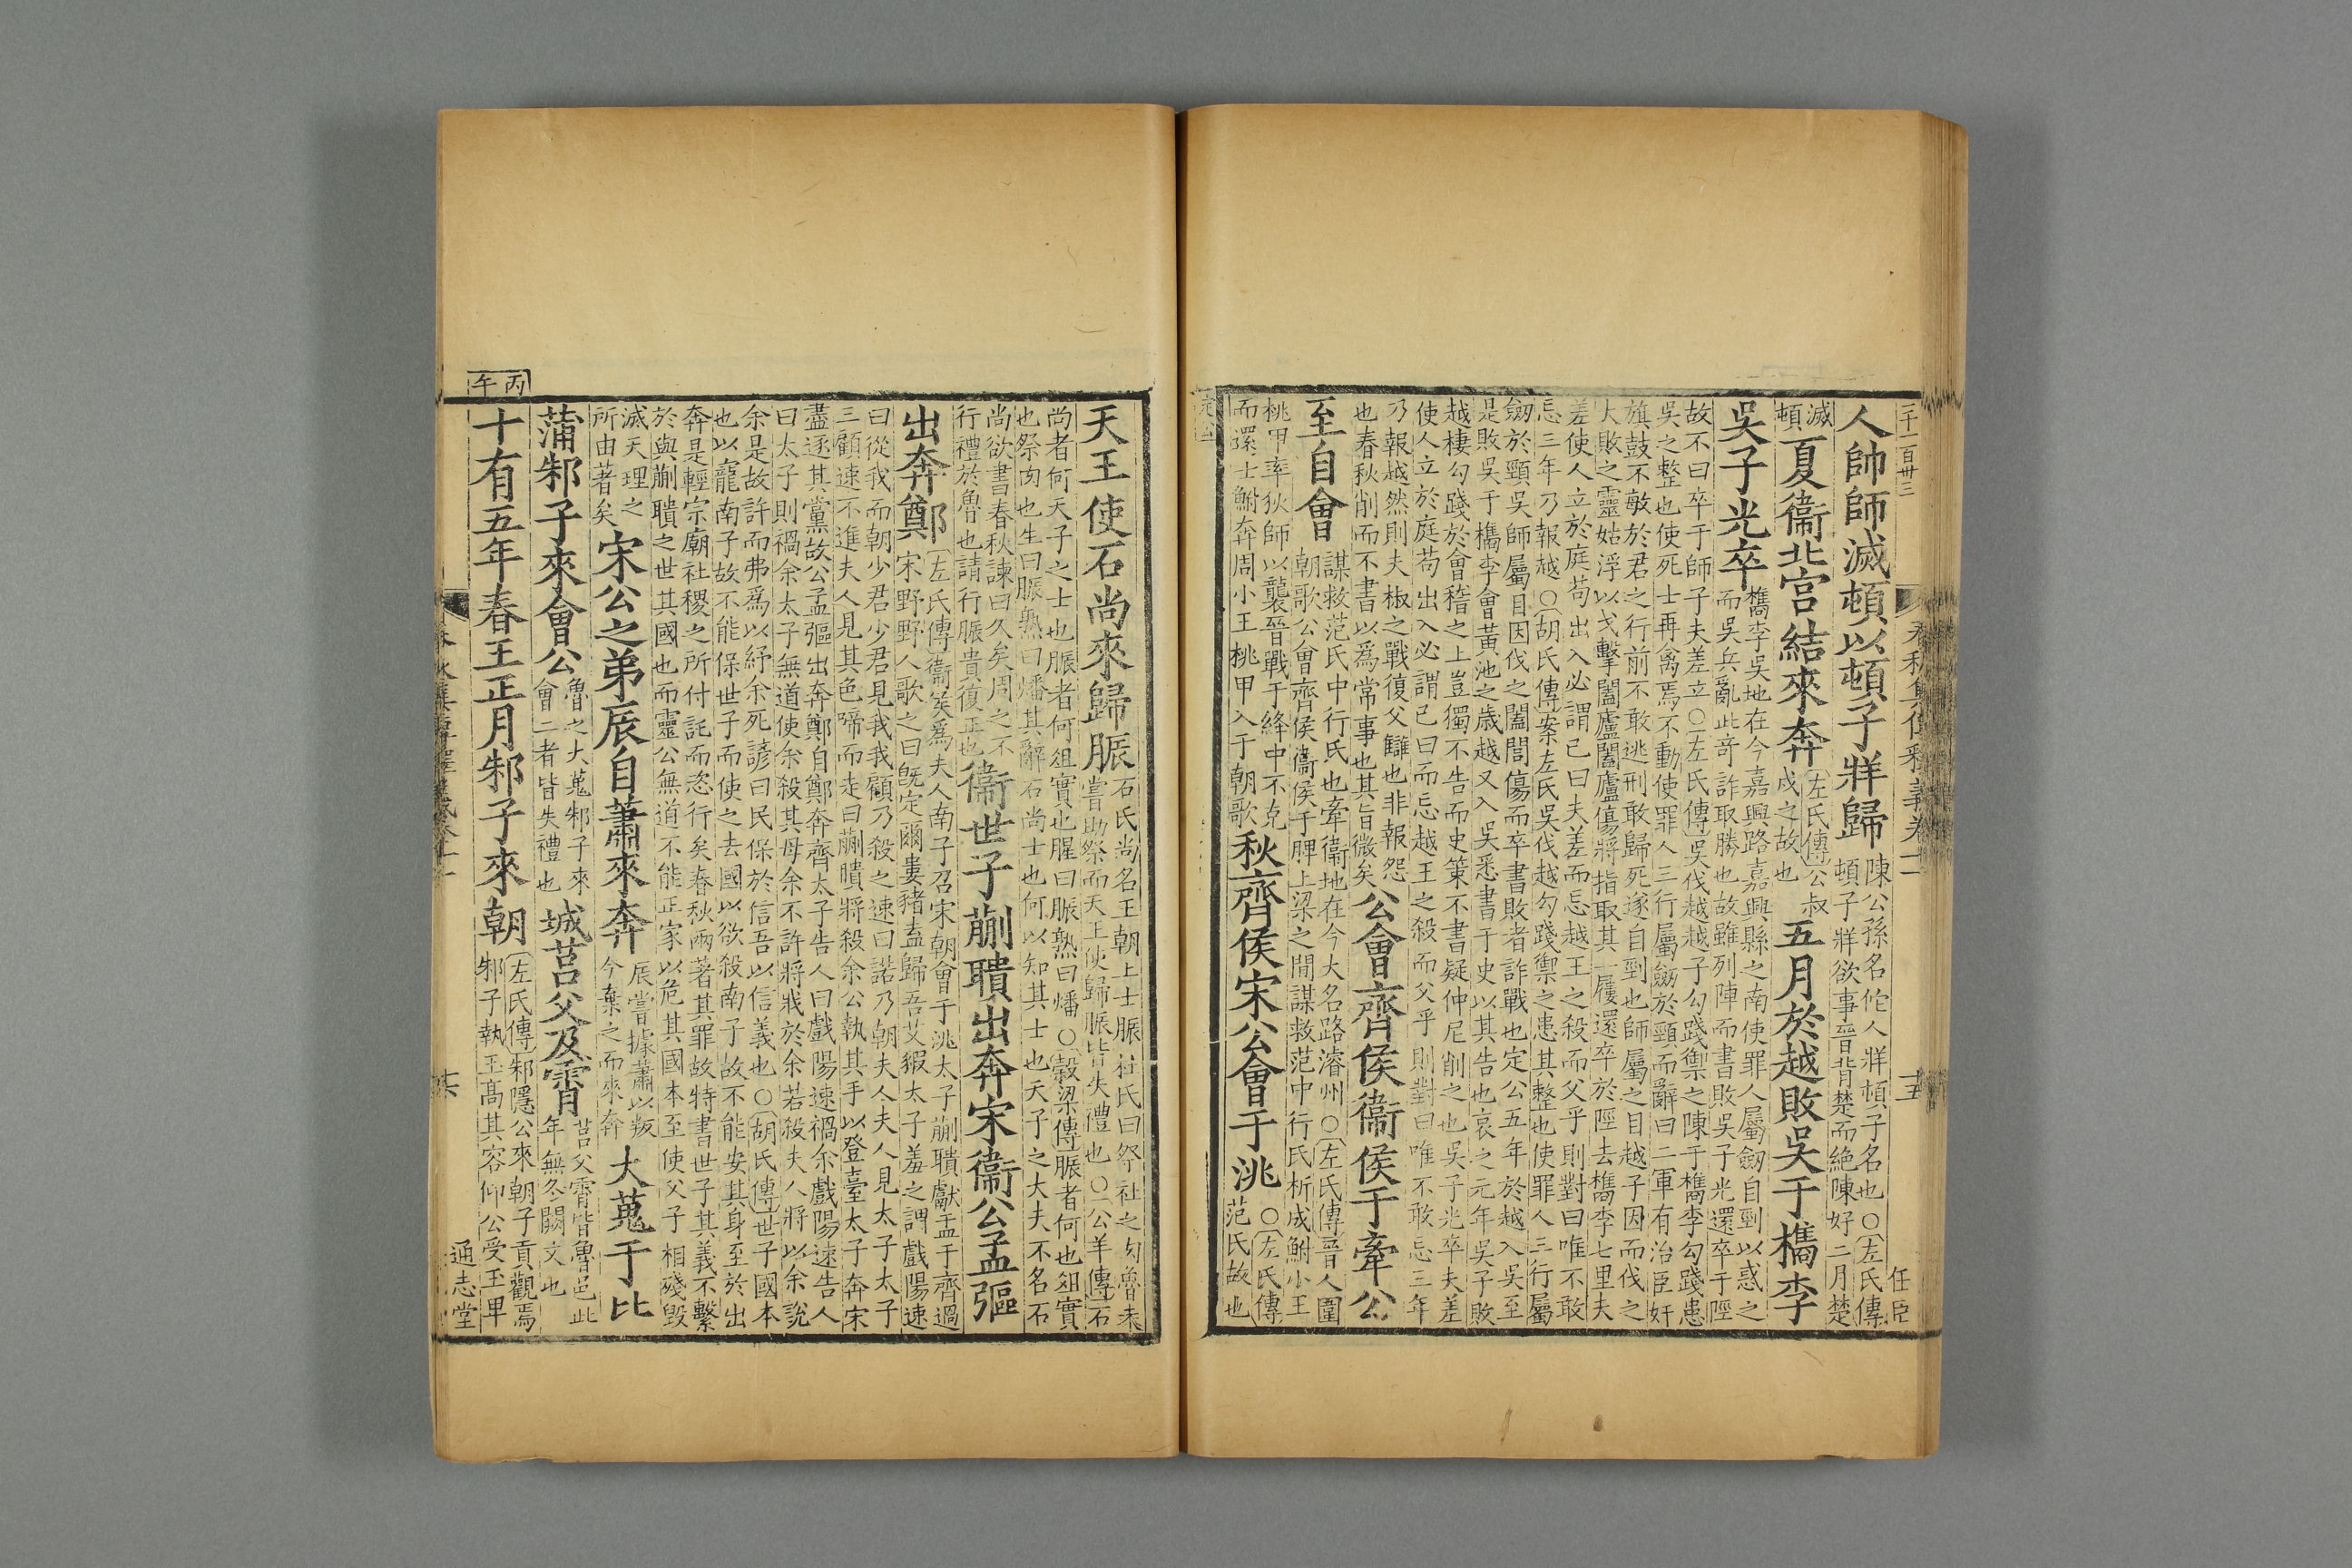 二千一百卅三
任臣
人帥師滅頓以頓子牂歸
陳公孫名佗人牂頓子名也○左氏傳
頓子牂欲事晉背楚而絶陳好二月楚
滅
頓
夏衞北宮結來奔
左氏傳公叔
戍之故也
五月於越敗吳于檇李
吳子光卒
檇李吳地在今嘉興路嘉興縣之南使罪人屬劒自剄以惑之
而吳兵亂此竒詐取勝也故雖列陣而書敗吳子光還卒于陘
故不曰卒于師子夫差立○左氏傳吳伐越越子勾踐禦之陳于檇李勾踐患
吳之整也使死士再禽焉不動使罪人三行屬劒於頸而辭曰二軍有治臣奸
旗鼓不敏於君之行前不敢逃刑敢歸死遂自剄也師屬之目越子因而伐之
大敗之靈姑浮以戈擊闔廬闔廬傷將指取其一屨還卒於陘去檇李七里夫
差使人立於庭苟出入必謂己曰夫差而忘越王之殺而父乎則對曰唯不敢
忘三年乃報越○胡氏傳案左氏吳伐越勾踐禦之患其整也使罪人三行屬
劒於頸吳師屬目因伐之闔閭傷而卒書敗者詐戰也定公五年於越入吳至
是敗吳于檇李會黃池之歲越又入吳悉書于史以其告也哀之元年吳子敗
越棲勾踐於會稽之上豈獨不告而史策不書疑仲尼削之也吳子光卒夫差
使人立於庭苟出入必謂己曰而忘越王之殺而父乎則對曰唯不敢忘三年
乃報越然則夫椒之戰復父讎也非報怨
也春秋削而不書以爲常事也其旨微矣
公會齊侯衞侯于牽公
至自會
謀救范氏中行氏也牽衞地在今大名路濬州○左氏傳晉人圍
朝歌公會齊侯衞侯于脾上梁之間謀救范中行氏析成鮒小王
桃甲率狄師以襲晉戰于絳中不克
而還士鮒奔周小王桃甲入于朝歌
秋齊侯宋公會于洮
○左氏傳
范氏故也
天王使石尚來歸脤
石氏尚名王朝上士脤杜氏曰祭社之肉魯未
嘗助祭而天王使歸脤皆失禮也○公羊傳石
尚者何天子之士也脤者何俎實也腥曰脤熟曰燔○穀梁傳脤者何也俎實
也祭肉也生曰脤熟曰燔其辭石尚士也何以知其士也天子之大夫不名石
尚欲書春秋諫曰久矣周之不
行禮於魯也請行脤貴復正也
衞世子蒯聵出奔宋衞公孟彄
出奔鄭
左氏傳衞侯爲夫人南子召宋朝會于洮太子蒯聵獻盂于齊過
宋野野人歌之曰旣定爾婁豬盍歸吾艾豭太子羞之謂戲陽速
曰從我而朝少君少君見我我顧乃殺之速曰諾乃朝夫人夫人見太子太子
三顧速不進夫人見其色啼而走曰蒯聵將殺余公執其手以登臺太子奔宋
盡逐其黨故公孟彄出奔鄭自鄭奔齊太子告人曰戲陽速禍余戲陽速告人
曰太子則禍余太子無道使余殺其母余不許將戕於余若殺夫人將以余說
余是故許而弗爲以紓余死諺曰民保於信吾以信義也○胡氏傳世子國本
也以寵南子故不能保世子而使之去國以欲殺南子故不能安其身至於出
奔是輕宗廟社稷之所付託而恣行矣春秋兩著其罪故特書世子其義不繫
於與蒯聵之世其國也而靈公無道不能正家以危其國本至使父子相殘毁
滅天理之
所由著矣
宋公之弟辰自蕭來奔
辰嘗據蕭以叛
今棄之而來奔
大蒐于比
蒲邾子來會公
魯之大蒐邾子來
會二者皆失禮也
城莒父及霄
莒父霄皆魯邑此
年無冬闕文也
丙午
十有五年春王正月邾子來朝
左氏傳邾隱公來朝子貢觀焉
邾子執玉髙其容仰公受玉卑
通志堂